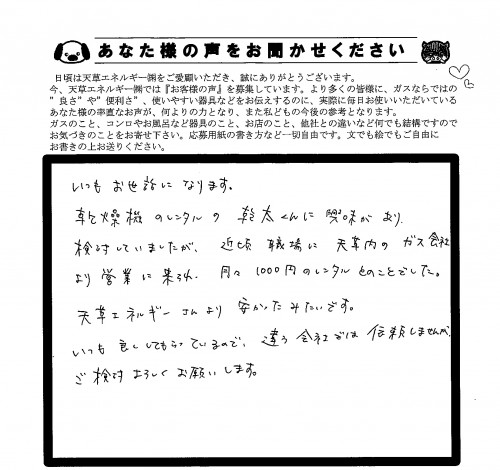 あなた様の声をお聞かせください
日頃は天草エネルギー㈱をご愛顧いただき、誠にありがとうございます。
今、天草エネルギー㈱では『お客様の声』を募集しています。より多くの皆様に、ガスならではの
”良さ”や”便利さ”、使いやすい器具などをお伝えするのに、実際に毎日お使いいただいている
あなた様の率直なお声が、何よりの力となり、また私どもの今後の参考となります。
ガスのこと、コンロやお風呂など器具のこと、お店のこと、他社との違いなど何でも結構ですので
お気づきのことをお寄せ下さい。応募用紙の書き方など一切自由です。文でも絵でもご自由に
お書きの上お送りください。
いつもお世話になります。
乾燥機のレンタルの乾太くんに興味があり、
検討していましたが、近頃職場に天草内のガス会社
より営業に来られ、月々1000円のレンタルとのことでした。
天草エネルギーさんより安かったみたいです。
いつも良くしてもらっているので、違う会社では依頼しませんが、
ご検討よろしくお願いします。